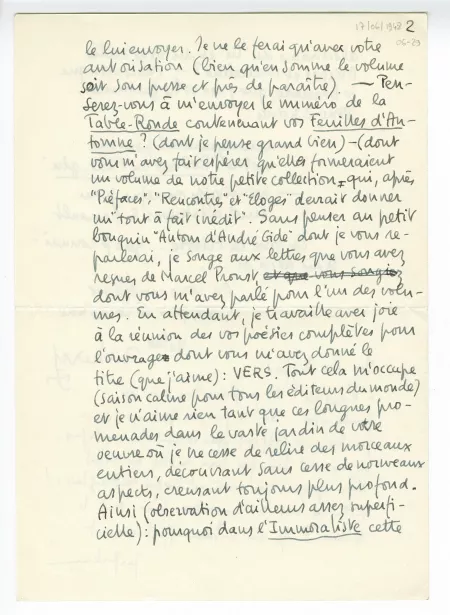 17/06/1948 2
06-29
le lui envoyer. Je ne le ferai qu'avec votre
autorisation (bien qu'en somme le volume
soit sous presse et près de paraître). — Pen-
serez-vous à m'envoyer le numéro de la
Table-Ronde contenant vos Feuilles d'Au-
tomne ? (dont je pense grand bien) – (dont
vous m'avez fait espérer qu'elles formeraient
un volume de notre petite collection, qui, après
"Préfaces", "Rencontres" et "Eloges" devrait donner
un "tout à fait inédit". Sans penser au petit
bouquin "Autour d'André Gide" dont je vous re-
parlerai, je songe aux lettres que vous avez
reçues de Marcel Proust et que vous songiez
dont vous m'avez parlé pour l'un des volu-
mes. En attendant, je travaille avec joie
à la réunion des vos poésies complètes pour
l'ouvrage dont vous m'avez donné le
titre (que j'aime) : VERS. Tout cela m'occupe
(saison calme pour tous les éditeurs du monde)
et je n'aime rien tant que ces longues pro-
menades dans le vaste jardin de votre
oeuvre où je ne cesse de relire des morceaux
entiers, découvrant sans cesse de nouveaux
aspects, creusant toujours plus profond.
Ainsi (observation d'ailleurs assez superfi-
cielle) : pourquoi dans l'Immoraliste cette